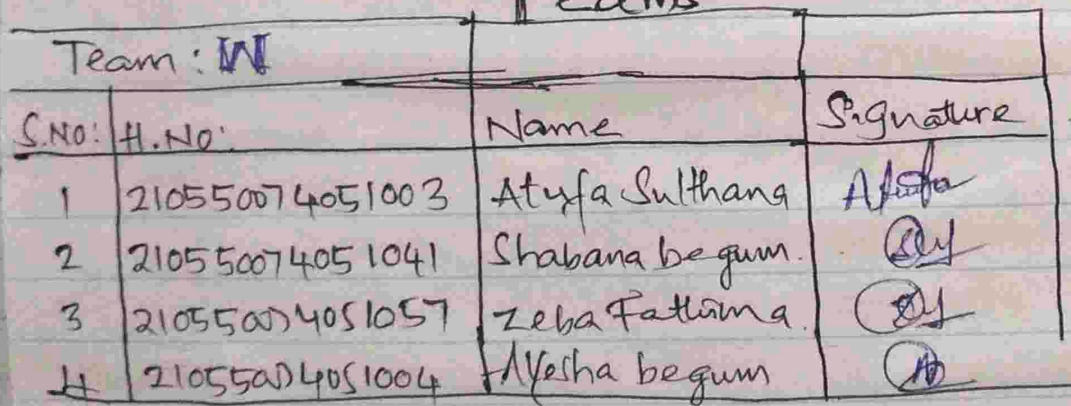 Team: W
S.NO: H.NO: Name Signature
1 210550074051003 Atyfa Sulthana Atyfa
2 210550074051041 Shabana begum.
3 210550074051057 Zeba Fathima.
4 210550074051004 Ayesha begum